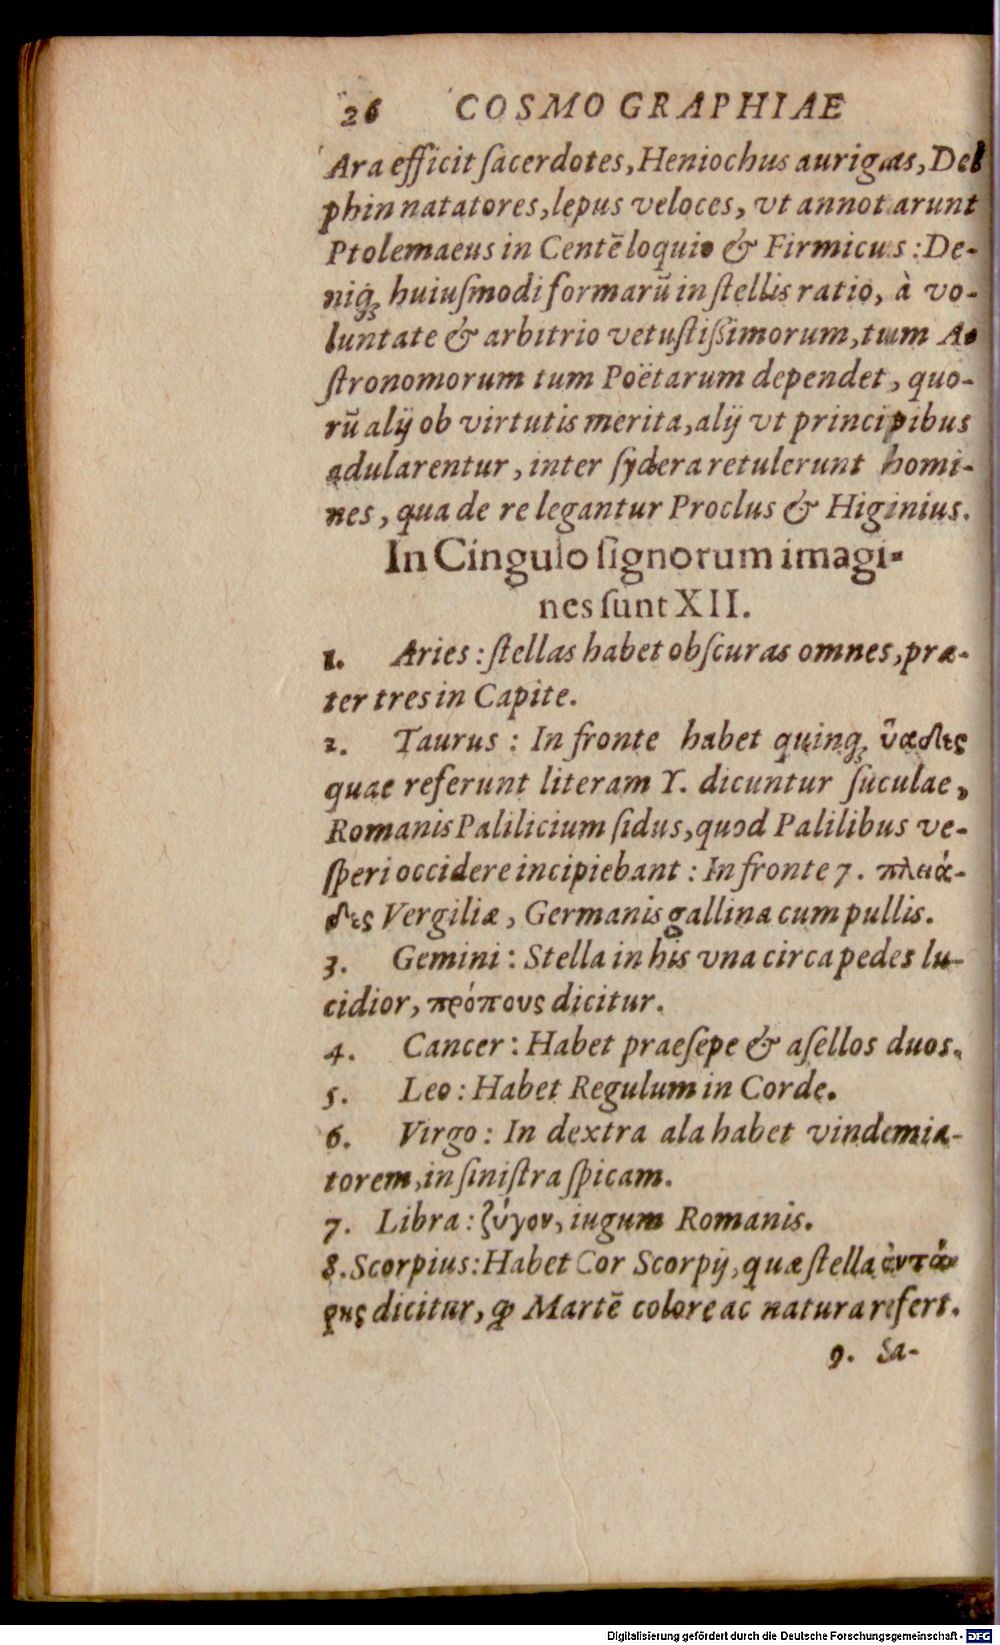 26 COSMOGRAPHIAE
Ara efficit ſacerdotes, Heniochus aurigas, Del
phin natatores, lepus veloces, vt annotarunt
Ptolemaeus in Centē loquio & Firmicus: De-
niq̨ huiuſmodi formarū in ſtellis ratio, à vo-
luntate & arbitrio vetuſtißimorum, tum A-
ſtronomorum tum Poëtarum dependet, quo-
rū alij ob virtutis merita, alij vt principibus
adularentur, inter ſydera retulerunt homi-
nes, qua de re legantur Proclus & Higinius.
In Cingulo ſignorum imagi-
nes ſunt XII.
1. Aries: ſtellas habet obſcuras omnes, præ-
ter tres in Capite.
2. Taurus: In fronte habet quinq̨ ὕαδες
quae referunt literam Y. dicuntur ſuculae,
Romanis Palilicium ſidus, quod Palilibus ve-
ſperi occidere incipiebant: In fronte 7. πλειά-
δες Vergiliæ, Germanis gallina cum pullis.
3. Gemini: Stella in his vna circa pedes lu-
cidior, πρόπους dicitur.
4. Cancer: Habet praeſepe & aſellos duos.
5. Leo: Habet Regulum in Corde.
6. Virgo: In dextra ala habet vindemia-
torem, in ſiniſtra ſpicam.
7. Libra: ζύγον, iugum Romanis.
8. Scorpius: Habet Cor Scorpij, quæ ſtella ἀντά-
ρης dicitur, ꝙ Martē colore ac natura refert.
9. Sa-
Digitalisierung gefördert durch die Deutsche Forschungsgemeinschaft - DFG